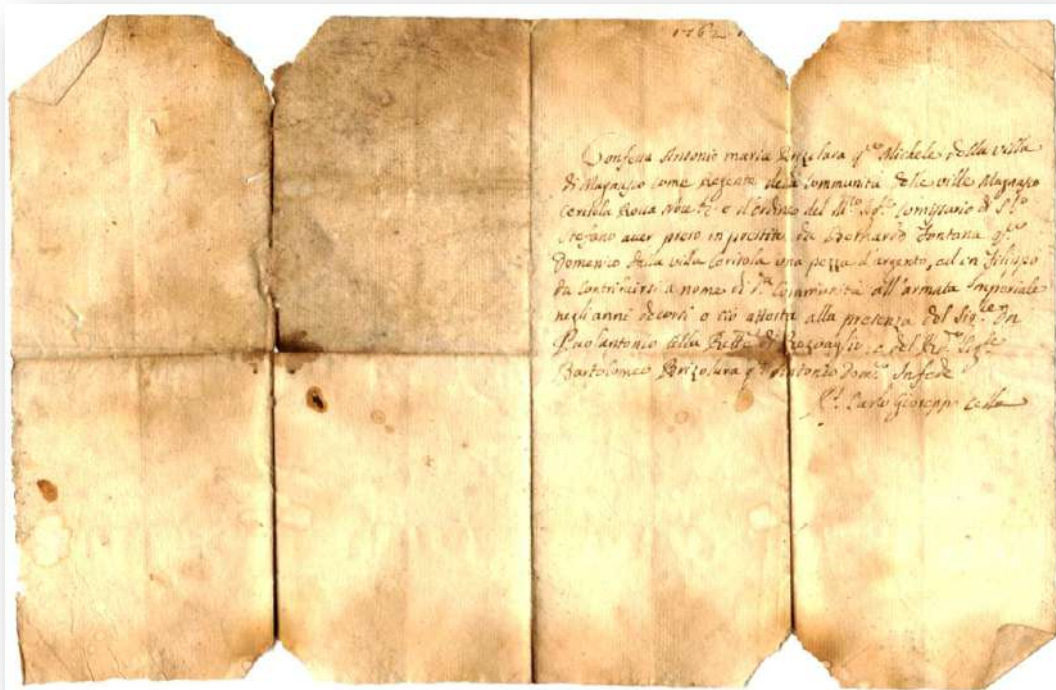 1762
Confessa Antonio maria Brizolara q.m Michele della villa
di Magnasco come Regente della Communità delle ville Magnasco
Cerisola Rossa Noce &c e d'ordine del M.co Sig.r Comissario di S.to
Stefano aver preso in prestito da Bernardo Fontana q.m
Domenico della villa Cerisola una pezza d'argento, ed un Filippo
da Contribuirsi a nome di d.ta Communità all'armata Imperiale
negli anni decorsi e ciò attesta alla presenza del Sig.r Dn
Paolantonio Cella di Rezoaglio e del
Bartolomeo Brizolara q.m Antonio Dom.co In fede
Carlo Giuseppe Cella